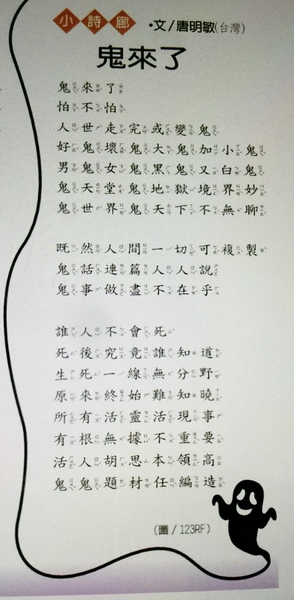 小詩廊 •文/唐明敏(台灣)
鬼來了
鬼來了
怕不怕
人世走完或變鬼
好鬼壞鬼大鬼加小鬼
男鬼女鬼黑鬼又白鬼
鬼天堂鬼地獄境界妙
鬼世界鬼天下不無聊
既然人間一切可複製
鬼話連篇人人說
鬼事做盡不在乎
誰人不會死
死後究竟誰知道
生死一線無分野
原來終始難知曉
所有活靈活現事
有根無據不重要
活人胡思本領高
鬼鬼題材任編造
(圖/123RF)